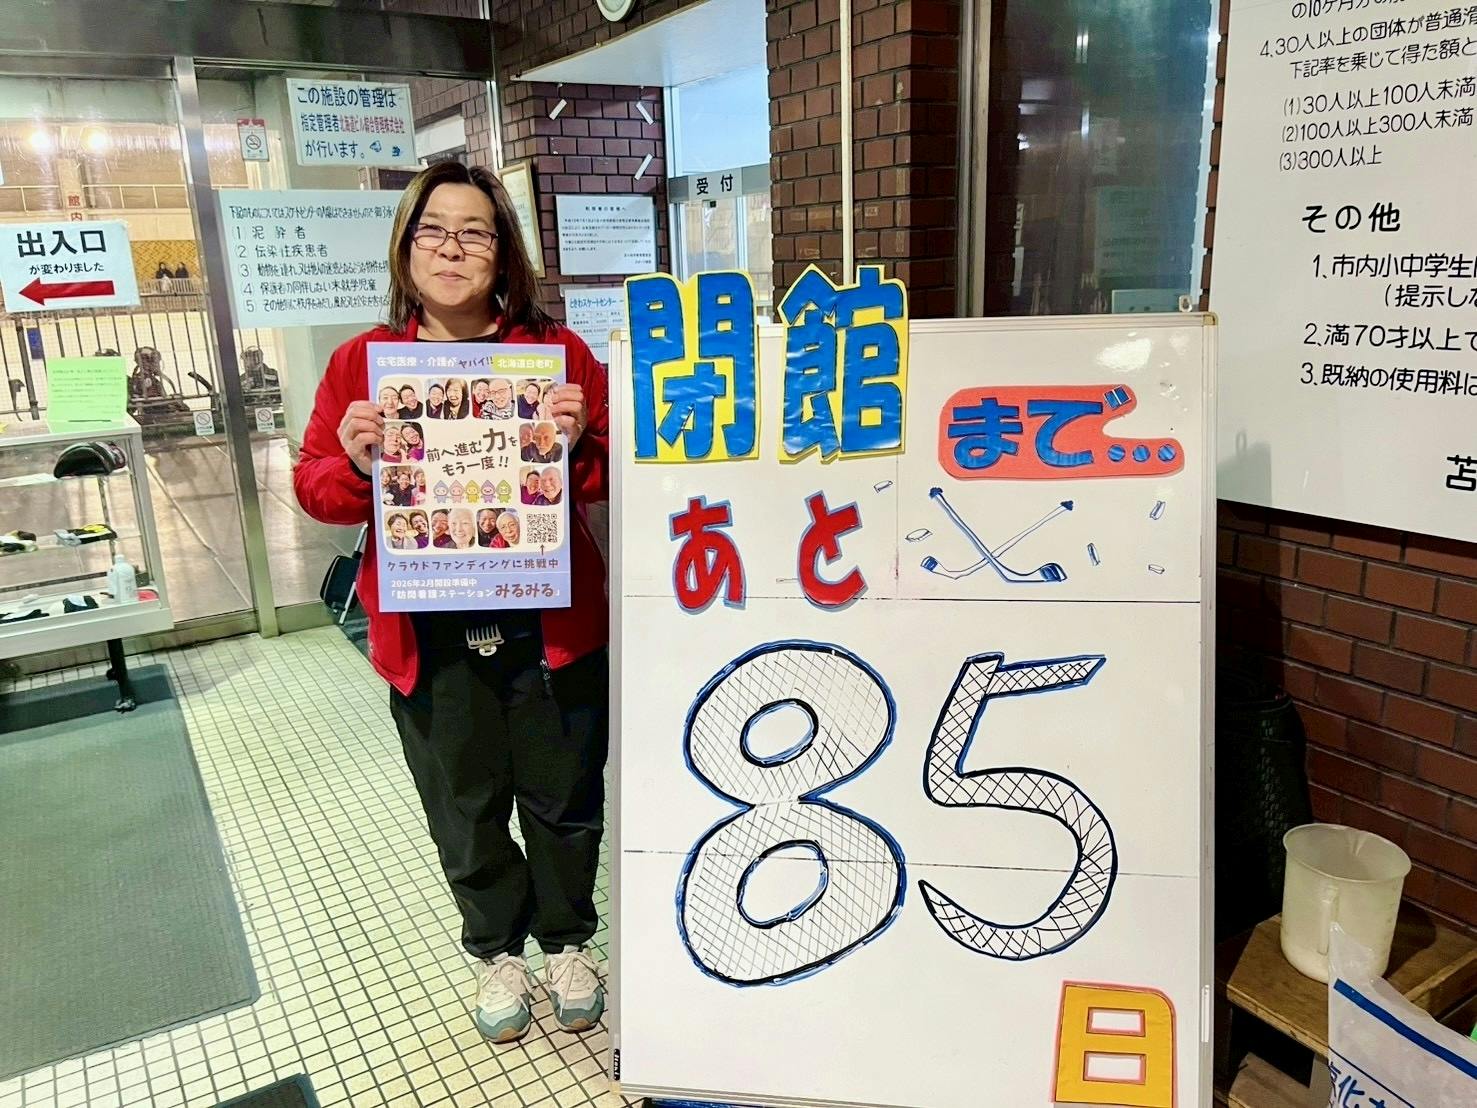 この施設の管理は
指定管理者北海道ビル総合管理株式会社
が行います。
館内
出入口
が変わりました
1 泥酔者
2 伝染性疾患者
4 保護者の同伴しない未就学児童
受付
在宅医療・介護がヤバイ!! 北海道白老町
前へ進む力を
もう一度!!
クラウドファンディングに挑戦中
2026年2月開設準備中
「訪問看護ステーションみるみる」
閉館
まで...
あと
85
日
の10ケ月分の
4.30人以上の団体が普通滑
下記率を乗じて得た額と
(1)30人以上100人未満
(2)100人以上300人未満
(3)300人以上
その他
1、市内小中学生
(提示しな
2、満70才以上で
3、既納の使用料は
苫